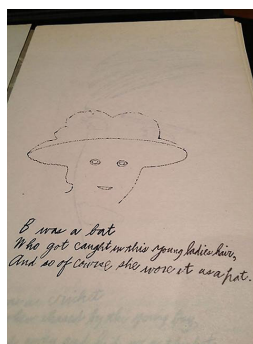 B was a bat
Who got caught in this young ladies hair,
And so of course she wore it as a hat.